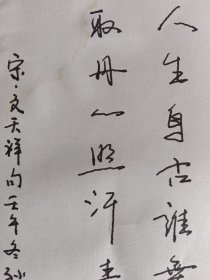 人生自古誰無
取丹心照汗青
宋·文天祥句壬午冬